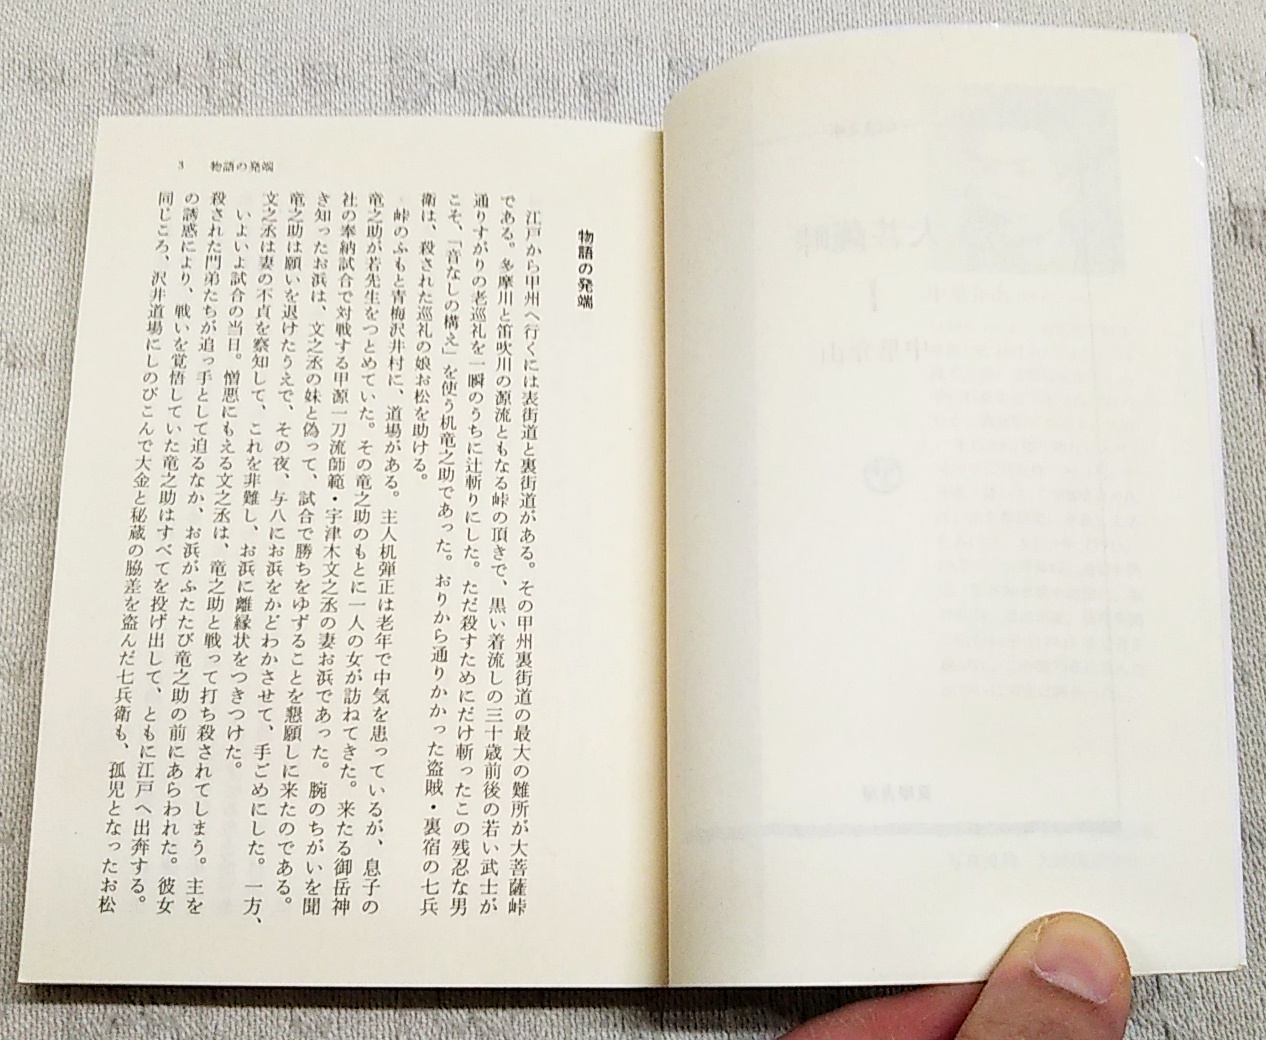 3 物語の発端
物語の発端
江戸から甲州へ行くには表街道と裏街道がある。その甲州裏街道の最大の難所が大菩薩峠
である。多摩川と笛吹川の源流ともなる峠の頂きで、黒い着流しの三十歳前後の若い武士が
通りすがりの老巡礼を一瞬のうちに辻斬りにした。ただ殺すためにだけ斬ったこの残忍な男
こそ、「音なしの構え」を使う机竜之助であった。おりから通りかかった盗賊・裏宿の七兵
衛は、殺された巡礼の娘お松を助ける。
峠のふもと青梅沢井村に、道場がある。主人机弾正は老年で中気を患っているが、息子の
竜之助が若先生をつとめていた。その竜之助のもとに一人の女が訪ねてきた。来たる御岳神
社の奉納試合で対戦する甲源一刀流師範・宇津木文之丞の妻お浜であった。腕のちがいを聞
き知ったお浜は、文之丞の妹と偽って、試合で勝ちをゆずることを懇願しに来たのである。
竜之助は願いを退けたうえで、その夜、与八にお浜をかどわかさせて、手ごめにした。一方、
文之丞は妻の不貞を察知して、これを非難し、お浜に離縁状をつきつけた。
いよいよ試合の当日。憎悪にもえる文之丞は、竜之助と戦って打ち殺されてしまう。主を
殺された門弟たちが追っ手として迫るなか、お浜がふたたび竜之助の前にあらわれた。彼女
の誘惑により、戦いを覚悟していた竜之助はすべてを投げ出して、ともに江戸へ出奔する。
同じころ、沢井道場にしのびこんで大金と秘蔵の脇差を盗んだ七兵衛も、孤児となったお松
大菩薩峠
1
中里介山
筑摩書房